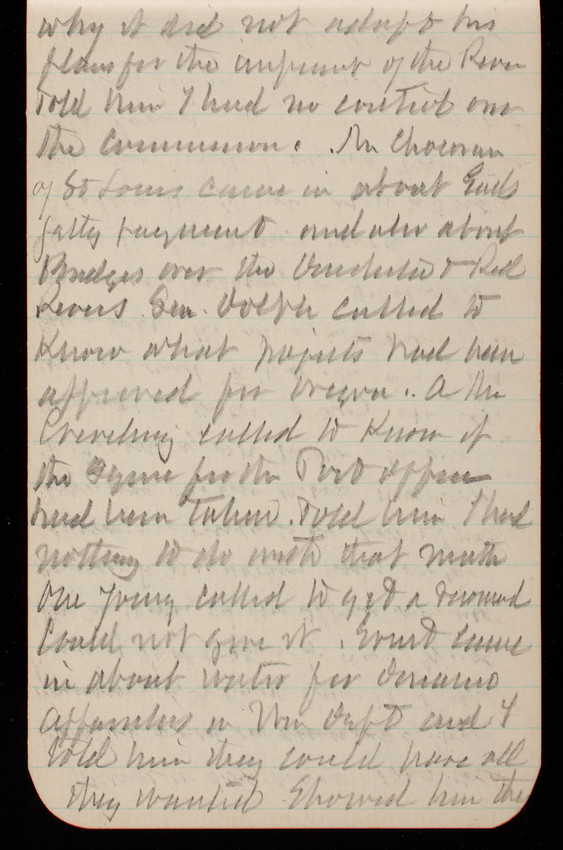 why it did not adopt his
plans for the improvt of the River
Told him I had no control over
the Commission. Mr
of St Louis came in about Eads
jetty payment and also about
Bridges over the & Red
Rivers Sen. Dolph called to
Know what projects had been
approved for Oregon. A Mr
called to Know if
the for the Post office
had been taken. Told him I had
nothing to do with that matter
One Young called to get a
Could not give it. came
in about water for
in War Dept and I
told him they could have all
they wanted Showed him the